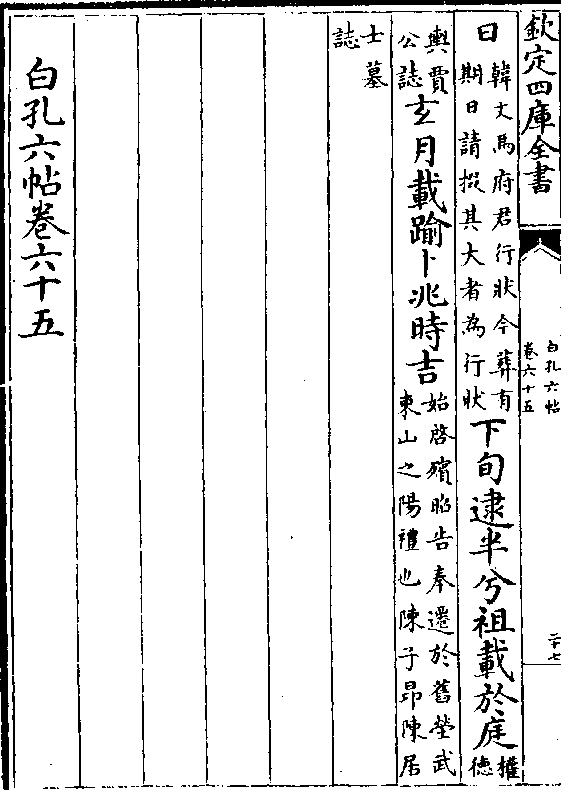 欽定四庫全書
白孔六帖
卷六十五
二十七
日
韓文馬府君行狀今葬有
期日請掇其大者為行狀
下旬逮半兮祖載於庭
權
德
輿賈
公誌
玄月載踰卜兆時吉
始啓殯昭告奉遷於舊塋武
東山之陽禮也陳子昂陳居
士墓
誌
白孔六帖卷六十五